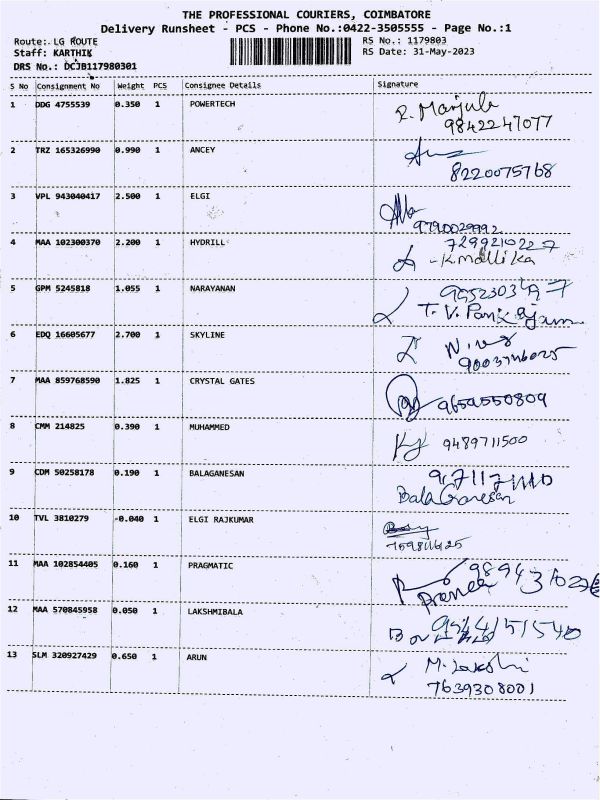 THE PROFESSIONAL COURIERS, COIMBATORE
Delivery Runsheet - PCS - Phone No.:0422-3505555 - Page No.:1
Route: LG ROUTE
RS No.: 1179803
Staff: KARTHIK
RS Date: 31-May-2023
DRS No.: DCJB117980301
S No Consignment No Weight PCS Consignee Details Signature
1 DDG 4755539 0.350 1 POWERTECH R. Manjula
9842247077
2 TRZ 165326990 0.990 1 ANCEY
8220075768
3 VPL 943040417 2.500 1 ELGI
9790029992
4 MAA 102300370 2.200 1 HYDRILL 7299210227
- K mallika
5 GPM 5245818 1.055 1 NARAYANAN
T. V. Pankajam
6 EDQ 16605677 2.700 1 SKYLINE
7 MAA 859768590 1.825 1 CRYSTAL GATES 9659550809
8 CMM 214825 0.390 1 MUHAMMED 9489711500
9 CDM 50258178 0.190 1 BALAGANESAN
Bala Ganesan
10 TVL 3810279 -0.040 1 ELGI RAJKUMAR
11 MAA 102854405 0.160 1 PRAGMATIC
12 MAA 570845958 0.050 1 LAKSHMIBALA
13 SLM 320927429 0.650 1 ARUN M. Lakshmi
7639308001